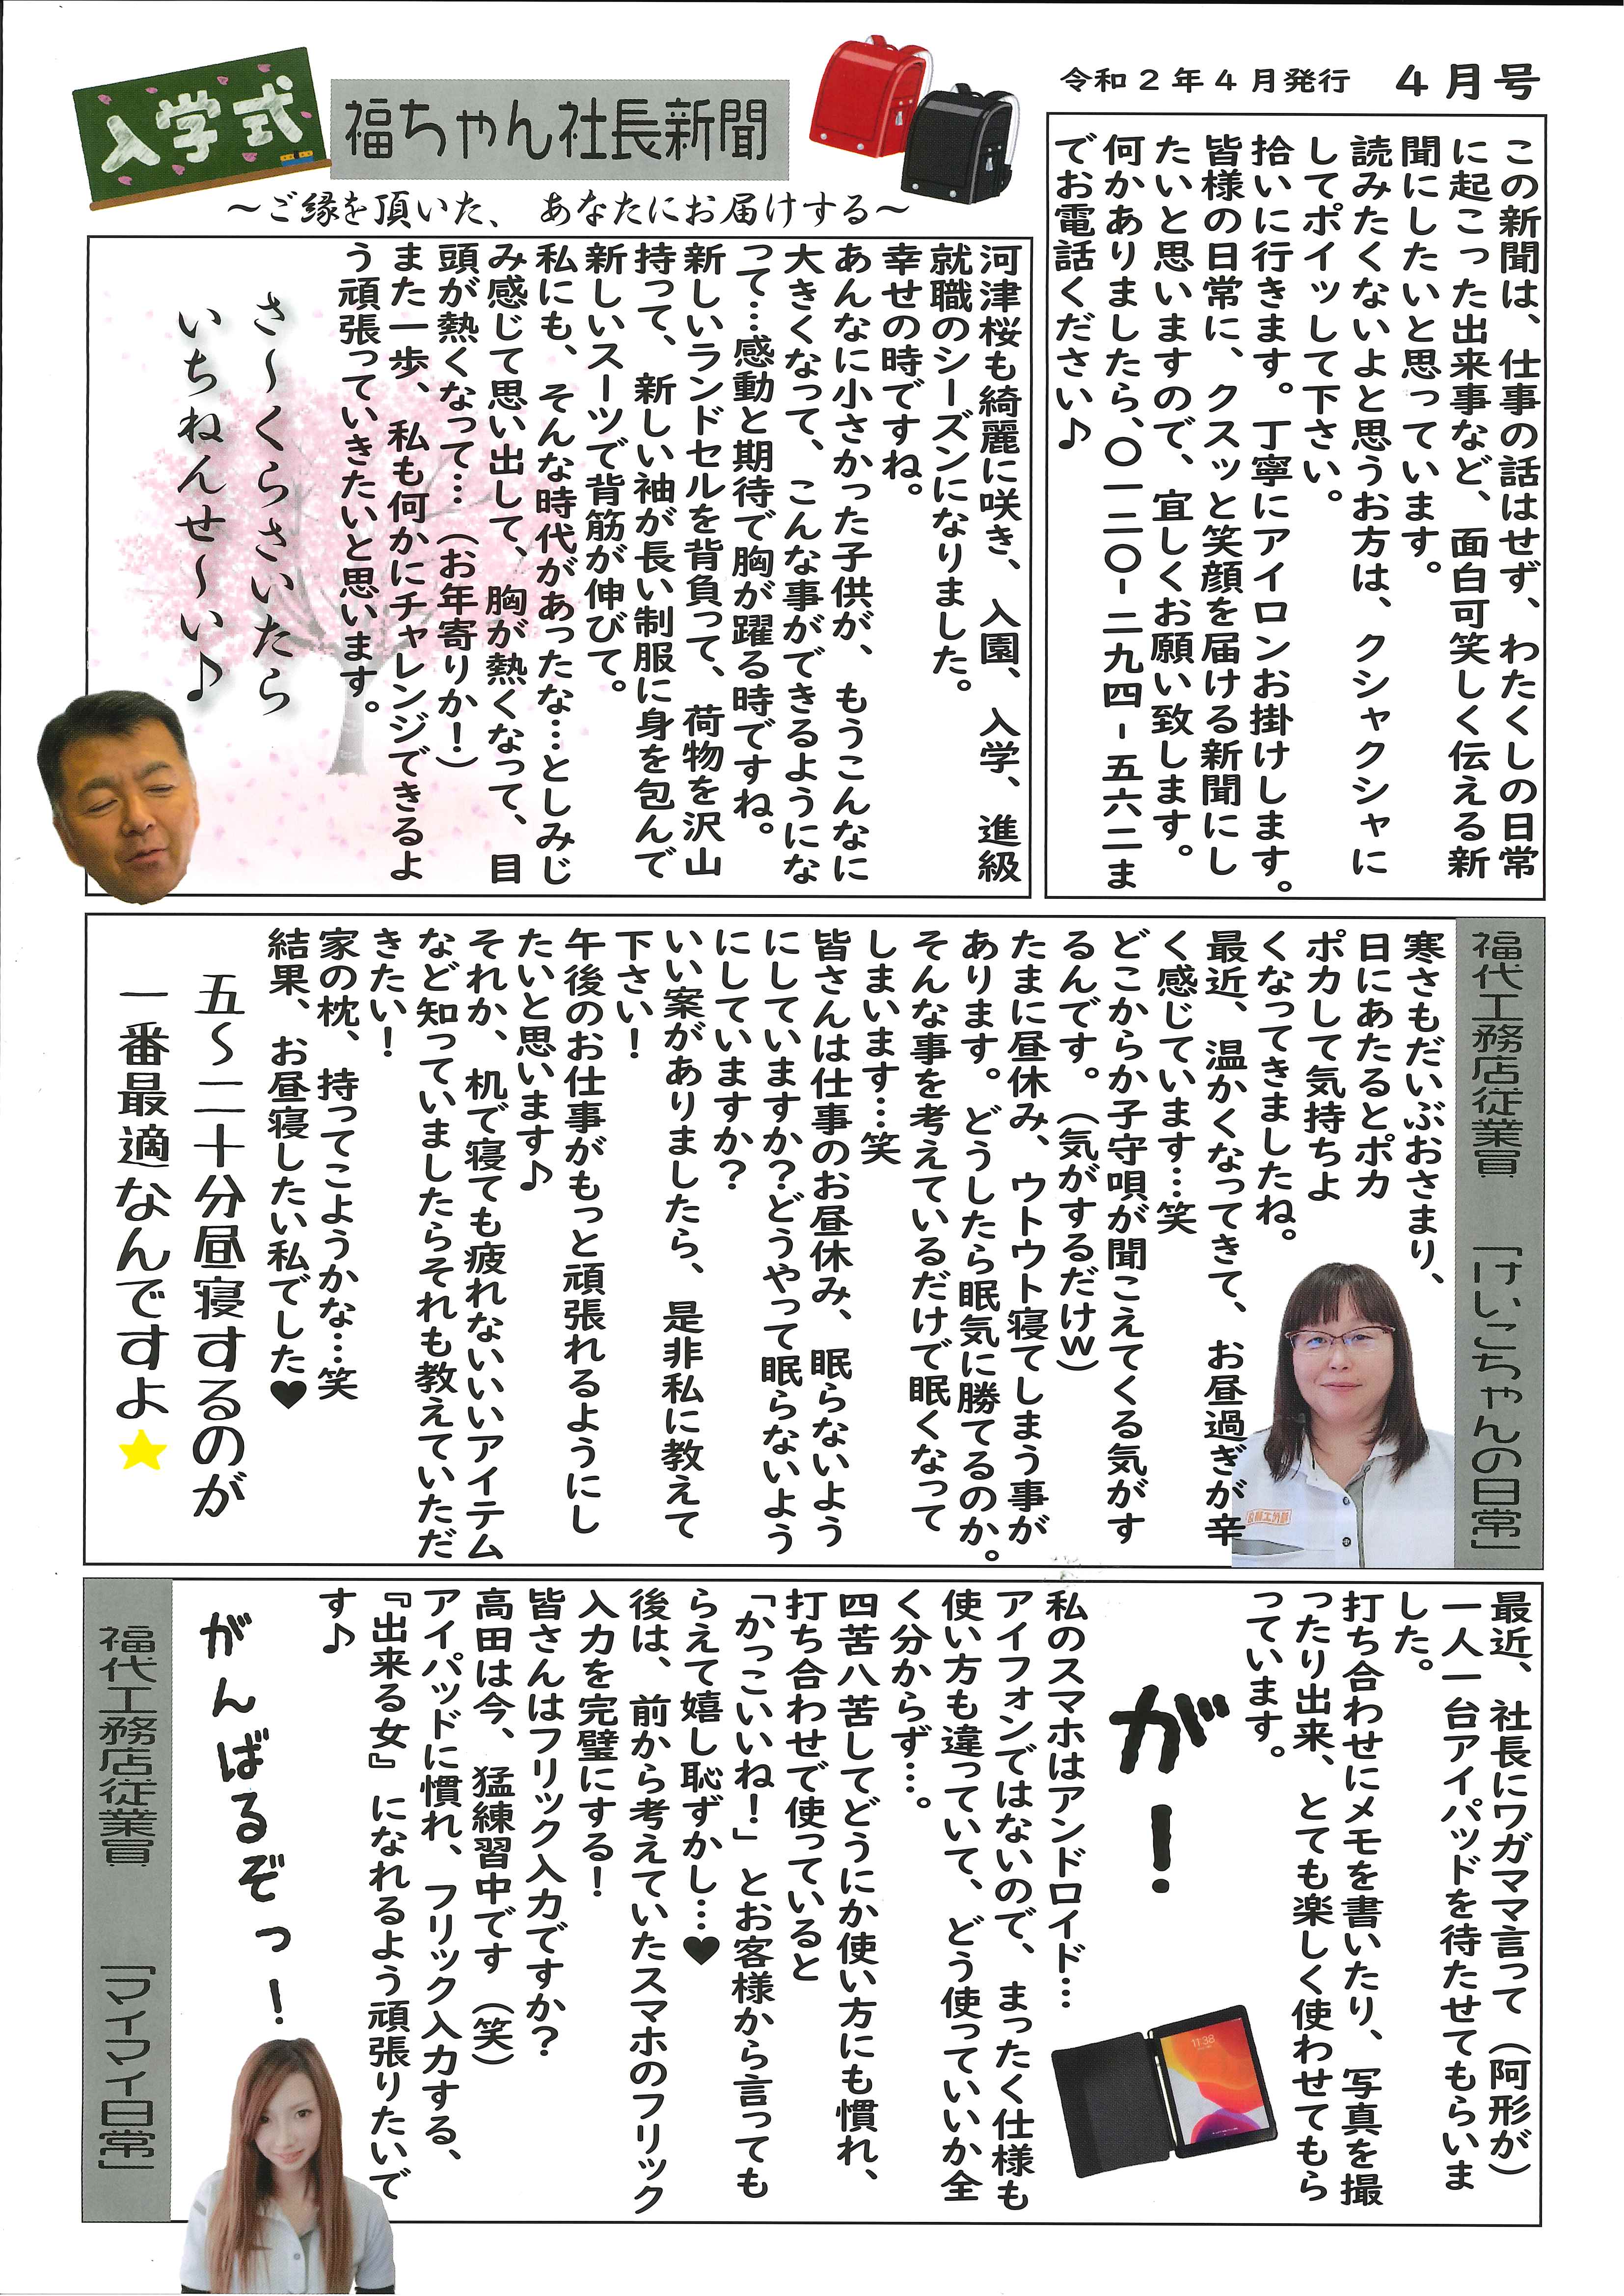 令和2年4月発行　4月号
入学式
福ちゃん社長新聞
～ご縁を頂いた、あなたにお届けする～
この新聞は、仕事の話はせず、わたくしの日常
に起こった出来事など、面白可笑しく伝える新
聞にしたいと思っています。
読みたくないよと思うお方は、クシャクシャに
してポイッして下さい。
拾いに行きます。丁寧にアイロンお掛けします。
皆様の日常に、クスッと笑顔を届ける新聞にし
たいと思いますので、宜しくお願い致します。
何かありましたら、〇一二〇-二九四-五六二ま
でお電話ください♪
河津桜も綺麗に咲き、入園、入学、進級
就職のシーズンになりました。
幸せの時ですね。
あんなに小さかった子供が、もうこんなに
大きくなって、こんな事ができるようにな
って…感動と期待で胸が躍る時ですね。
新しいランドセルを背負って、荷物を沢山
持って、新しい袖が長い制服に身を包んで
新しいスーツで背筋が伸びて。
私にも、そんな時代があったな…としみじ
み感じて思い出して、胸が熱くなって、目
頭が熱くなって…（お年寄りか！）
また一歩、私も何かにチャレンジできるよ
う頑張っていきたいと思います。
さ～くらさいたら
いちねんせ～い♪
福代工務店従業員　「けいこちゃんの日常」
寒さもだいぶおさまり、
日にあたるとポカ
ポカして気持ちよ
くなってきましたね。
最近、温かくなってきて、お昼過ぎが辛
く感じています…笑
どこからか子守唄が聞こえてくる気がす
るんです。（気がするだけw）
たまに昼休み、ウトウト寝てしまう事が
あります。どうしたら眠気に勝てるのか。
そんな事を考えているだけで眠くなって
しまいます…笑
皆さんは仕事のお昼休み、眠らないよう
にしていますか？どうやって眠らないよう
にしていますか？
いい案がありましたら、是非私に教えて
下さい！
午後のお仕事がもっと頑張れるようにし
たいと思います♪
それか、机で寝ても疲れないいいアイテム
など知っていましたらそれも教えていただ
きたい！
家の枕、持ってこようかな…笑
結果、お昼寝したい私でした♥
五～二十分昼寝するのが
一番最適なんですよ★
最近、社長にワガママ言って（阿形が）
一人一台アイパッドを待たせてもらいま
した。
打ち合わせにメモを書いたり、写真を撮
ったり出来、とても楽しく使わせてもら
っています。
が！
私のスマホはアンドロイド…
アイフォンではないので、まったく仕様も
使い方も違っていて、どう使っていいか全
く分からず…。
四苦八苦してどうにか使い方にも慣れ、
打ち合わせで使っていると
「かっこいいね！」とお客様から言っても
らえて嬉し恥ずかし…♥
後は、前から考えていたスマホのフリック
入力を完璧にする！
皆さんはフリック入力ですか？
高田は今、猛練習中です（笑）
アイパッドに慣れ、フリック入力する、
『出来る女』になれるよう頑張りたいで
す♪
がんばるぞっ！
11:38
福代工務店従業員　「マイマイ日常」